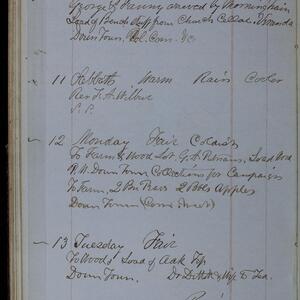 George & Fanny arrived by Morning train
Load of Bench Stuff from Church Cellar
Down Town, Pol. Com. &c
11 Sabbath Warm Rain Cooler
Rev. F. A. Wilbur
S. P.
12 Monday Fair Colder
To Farm & Wood Lot. G. A. Load Wood
P.M. Down Town Collections for Campaign
To Farm, 2 Bu Pears 2 Bbls Apples
Down Town
13 Tuesday Fair
To Woods Load of Oak Top
Down Town. Dr & Wife To Tea.